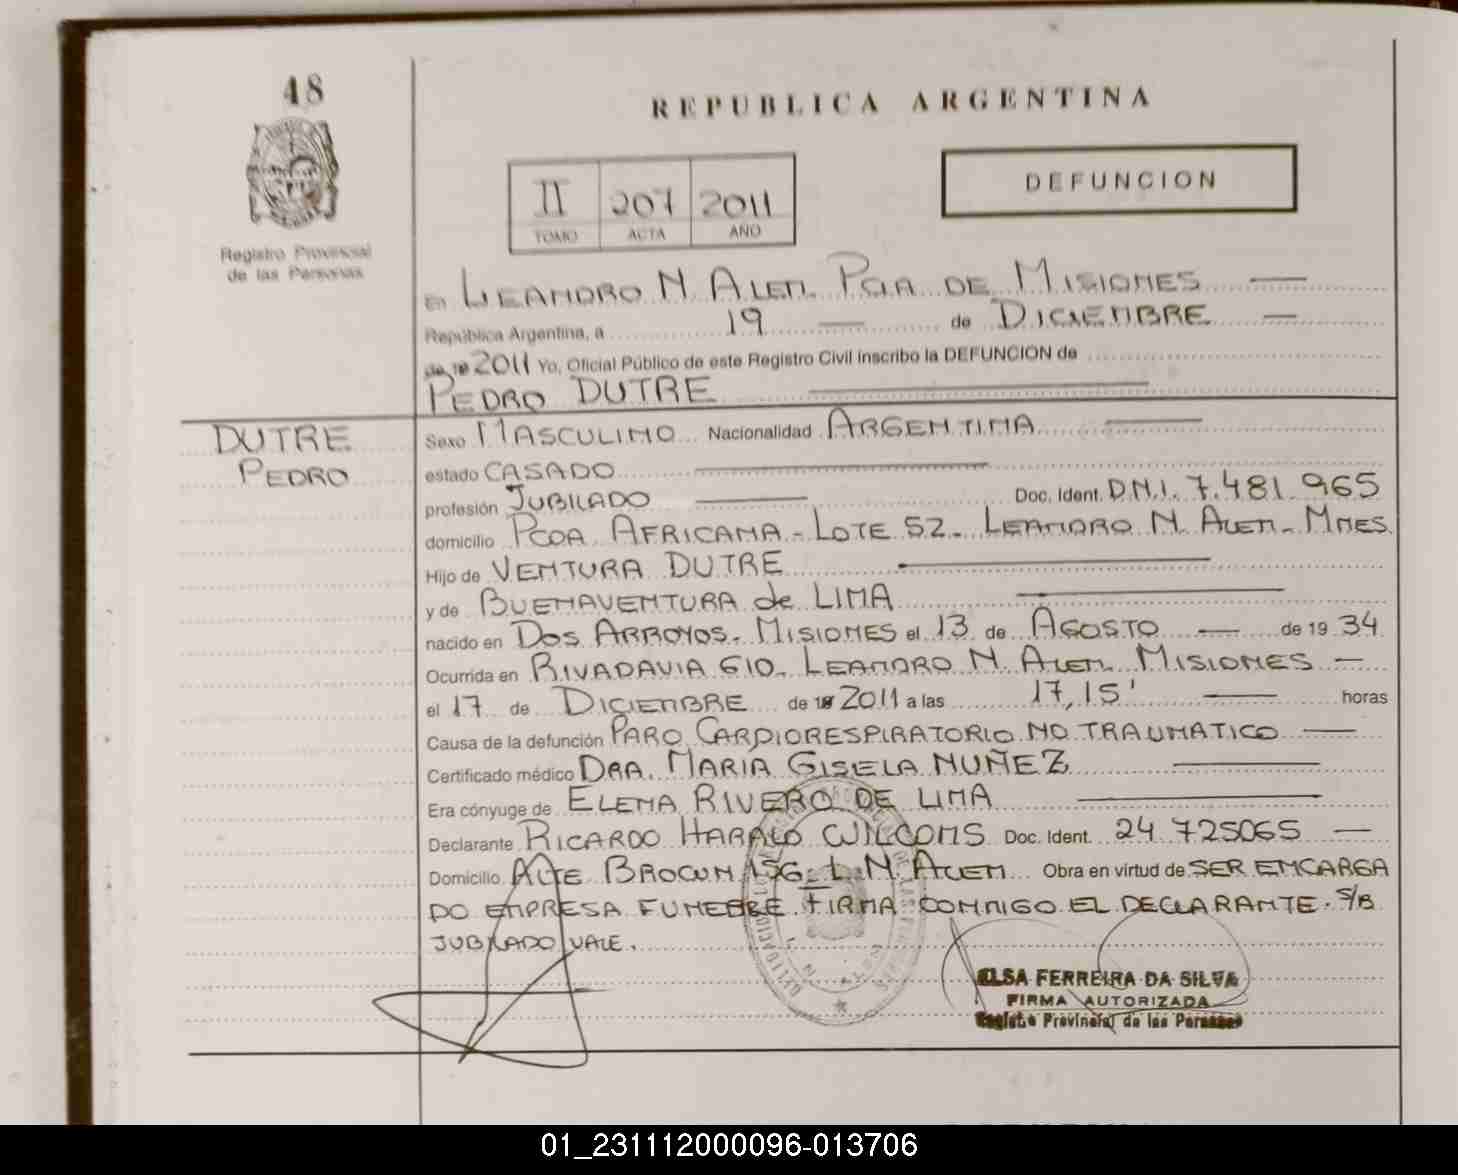 48
REPUBLICA ARGENTINA
II 207 2011
TOMO ACTA AÑO
DEFUNCION
Registro Provincial
de las Personas
En LEANDRO N. ALEM. PCIA DE MISIONES
República Argentina, a 19 de DICIEMBRE
de 2011 Yo, Oficial Público de este Registro Civil inscribo la DEFUNCION de
PEDRO DUTRE
DUTRE
PEDRO
Sexo MASCULINO Nacionalidad ARGENTINA
estado CASADO
profesión JUBILADO Doc. Ident. D.N.I. 7.481.965
domicilio PCDA AFRICANA - LOTE 52 - LEANDRO N. ALEM - MNES.
Hijo de VENTURA DUTRE
y de BUENAVENTURA de LIMA
nacido en DOS ARROYOS. MISIONES el 13 de AGOSTO de 19 34
Ocurrida en RIVADAVIA 610. LEANDRO N. ALEM. MISIONES
el 17 de DICIEMBRE de 2011 a las 17,15' horas
Causa de la defunción PARO CARDIORESPIRATORIO NO TRAUMATICO
Certificado médico DRA. MARIA GISELA NUÑEZ
Era cónyuge de ELENA RIVERO DE LIMA
Declarante RICARDO HARALD Doc. Ident. 24.725065
Domicilio ALTE BROWN L. N. ALEM Obra en virtud de SER ENCARGA
DO EMPRESA FUNEBRE. FIRMA CONMIGO EL DECLARANTE. S/B
JUBILADO VALE.
ELSA FERREIRA DA SILVA
FIRMA AUTORIZADA
Registro Provincial de las Personas
01_231112000096-013706